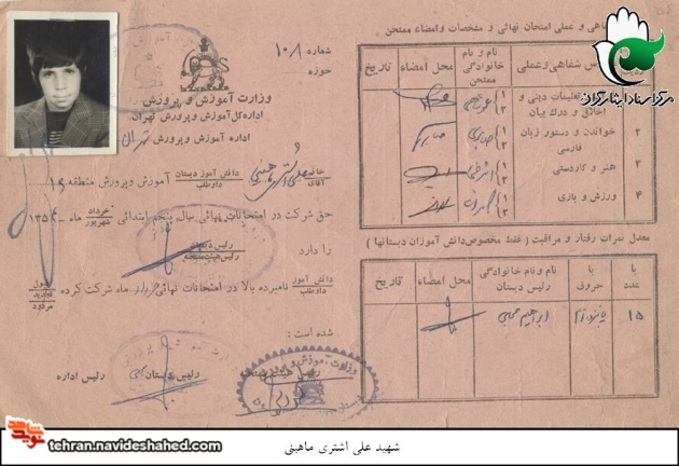 مرکز اسناد ایثارگران
شماره ۱۰۸
حوزه
وزارت آموزش و پرورش
اداره کل آموزش و پرورش تهران
اداره آموزش و پرورش تهران
خانم آقای علی اشتری ماهینی دانش آموز دبستان داوطلب آموزش و پرورش منطقه
حق شرکت در امتحانات نهائی سال پنجم ابتدائی خرداد شهریور ماه
را دارد
رئیس دبستان
رئیس هیئت ممتحنه
دانش آموز داوطلب نامبرده بالا در امتحانات نهائی ماه شرکت کرده قبول تجدید مردود
شده است :
رئیس دبستان
رئیس اداره
وزارت آموزش و پرورش
شفاهی و عملی امتحان نهائی و مشخصات و امضاء ممتحن
درس شفاهی و عملی
نام و نام خانوادگی ممتحن
محل امضاء
تاریخ
تعلیمات دینی و اخلاق و درک بیان
۲ خواندن و دستور زبان فارسی
۳ هنر و کاردستی
۴ ورزش و بازی
معدل نمرات رفتار و مراقبت ( فقط مخصوص دانش آموزان دبستانها )
با عدد
با حروف
نام و نام خانوادگی رئیس دبستان
محل امضاء
تاریخ
۱۵ پانزده تمام ابراهیم
نوید شاهد
tehran.navideshahed.com
شهید علی اشتری ماهینی